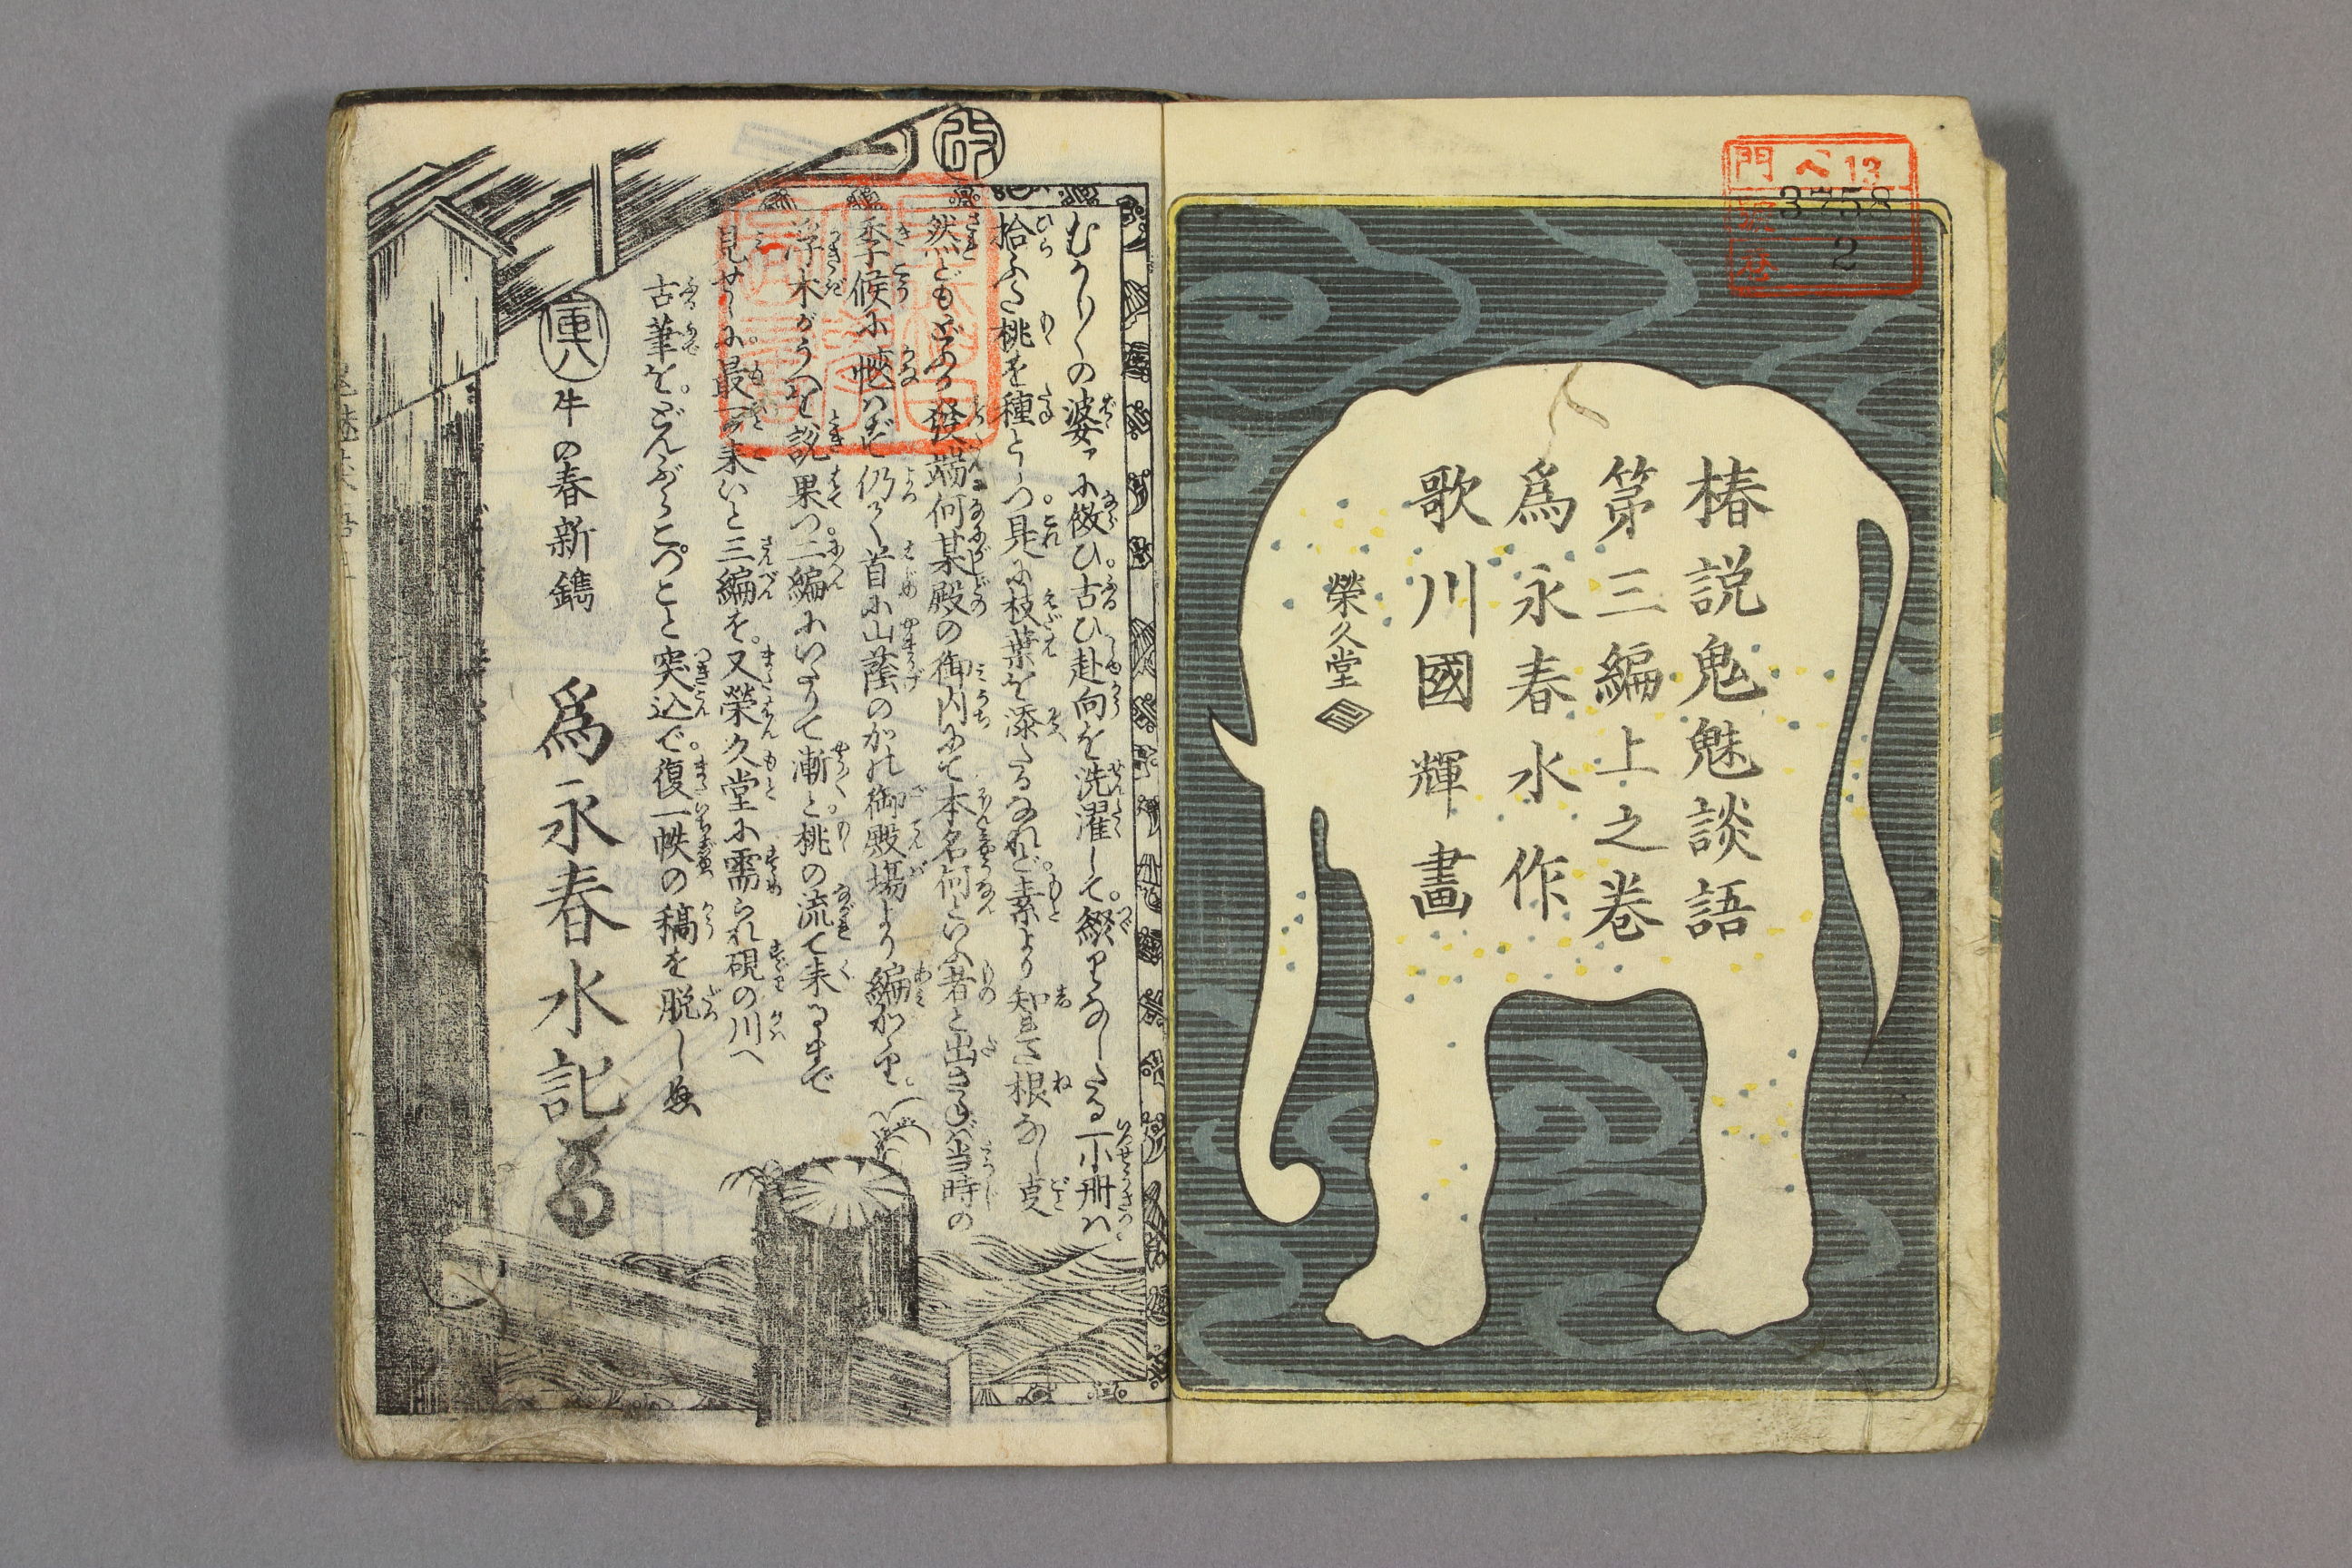 門 ヘ13
號 3758
巻 2
椿説鬼魅談語
第三編上之巻
為永春水作
歌川國輝畫
榮久堂
改
むかし〱の婆々に倣ひ。古ひ赴向を洗濯して。綴りなしたる一小冊ハ
拾ふた桃を種としつ。是に枝葉を添たるなれど。素より知らざる根なし叓
然ども
發端何某殿の御内にて本名何といふ者と出さねバ当時の
季候に
仍て首に山蔭のかの御殿場より編かけ。
浮木
説果つ。二編にいたりて漸々と。桃の流て来るまで
見せしに。最一ツ来いと三編を。又榮久堂に需られ硯の川へ
古筆を。どんぶらこツこと突込で。復一帙の稿を脱しぬ
寅八
牛の春新鐫
為永春水記